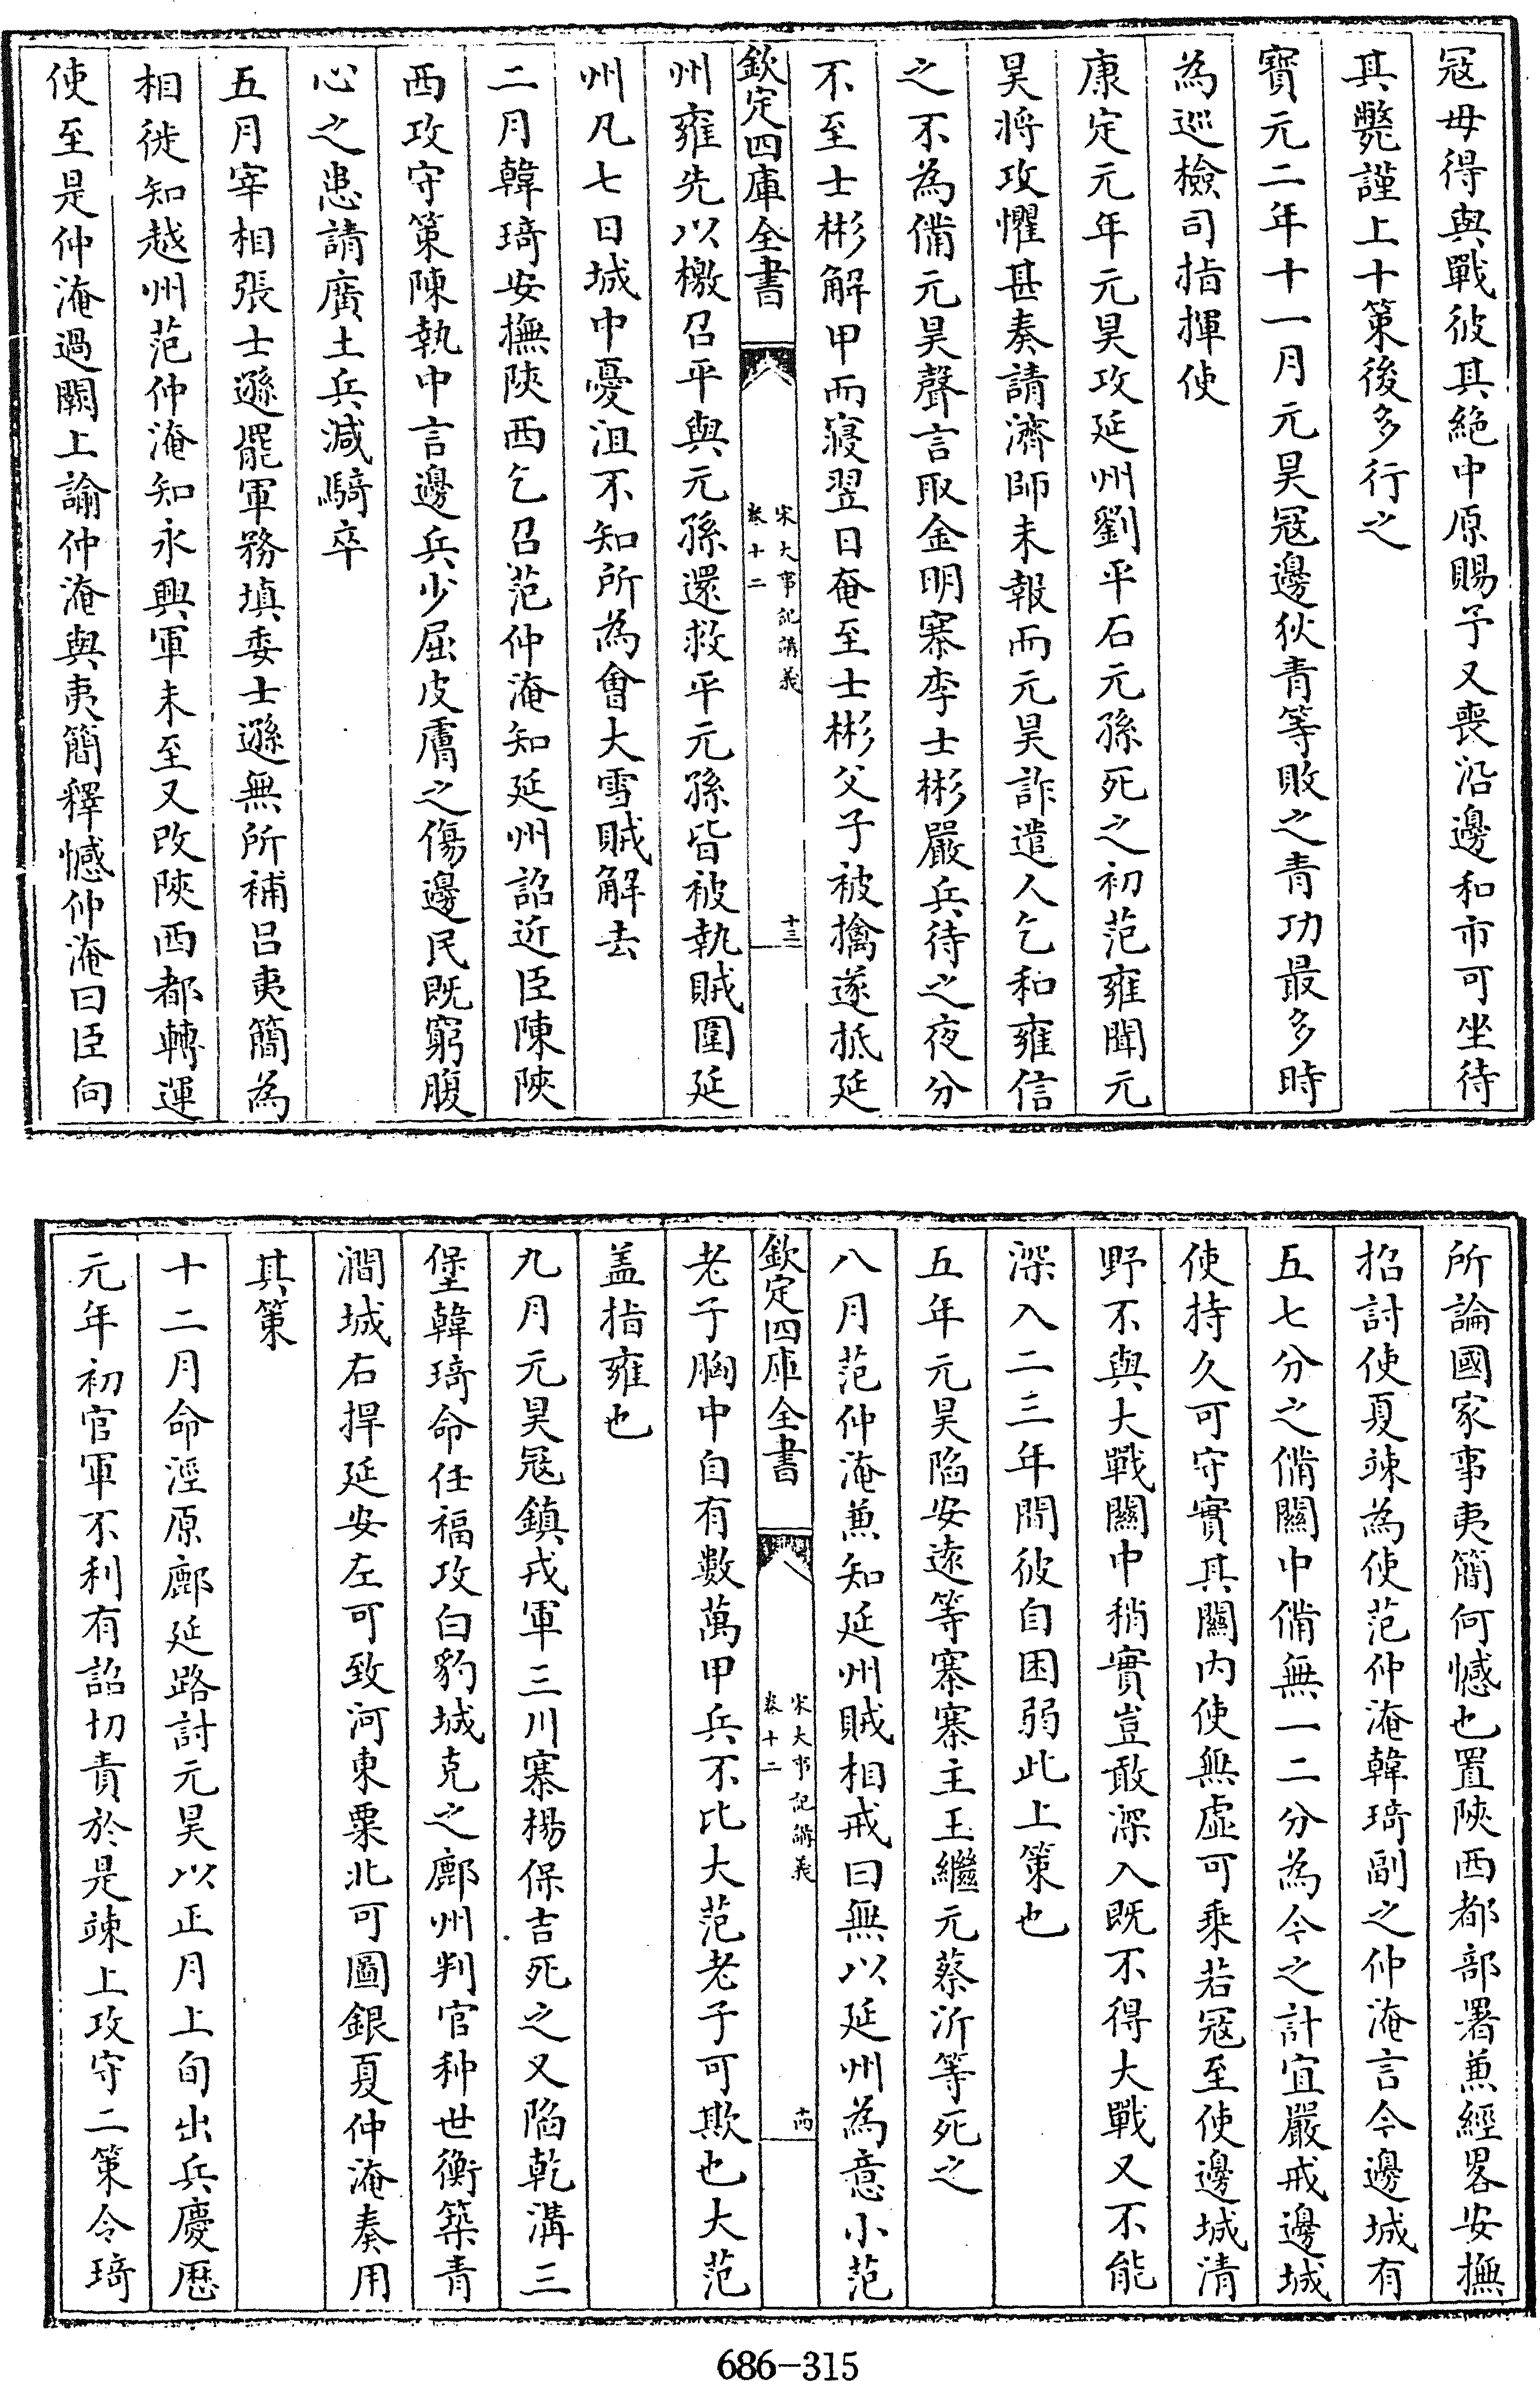 冦毋得與戰彼其絶中原賜予又喪沿邊和市可坐待
其斃謹上十策後多行之
寳元二年十一月元昊冦邊狄青等敗之青功最多時
為巡檢司指揮使
康定元年元昊攻延州劉平石元孫死之初范雍聞元
昊將攻懼甚奏請濟師未報而元昊詐遣人乞和雍信
之不為備元昊聲言取金明寨李士彬嚴兵待之夜分
不至士彬解甲而寢翌日奄至士彬父子被擒遂抵延
欽定四庫全書
宋大事記講義
卷十二
十三
州雍先以檄召平與元孫還救平元孫皆被執賊圍延
州凡七日城中憂沮不知所為會大雪賊解去
二月韓琦安撫陜西乞召范仲淹知延州詔近臣陳陜
西攻守策陳執中言邊兵少屈皮膚之傷邊民既窮腹
心之患請廣土兵減騎卒
五月宰相張士遜罷軍務填委士遜無所補吕夷簡為
相徙知越州范仲淹知永興軍未至又改陜西都轉運
使至是仲淹過闕上諭仲淹與夷簡釋憾仲淹曰臣向
所論國家事夷簡何憾也置陜西都部署兼經畧安撫
招討使夏竦為使范仲淹韓琦副之仲淹言今邊城有
五七分之備關中備無一二分為今之計宜嚴戒邊城
使持久可守實其關内使無虚可乘若冦至使邊城清
野不與大戰關中稍實豈敢深入既不得大戰又不能
深入二三年間彼自困弱此上策也
五年元昊陷安遠等寨寨主王繼元蔡沂等死之
八月范仲淹兼知延州賊相戒曰無以延州為意小范
欽定四庫全書
宋大事記講義
卷十二
十四
老子胸中自有數萬甲兵不比大范老子可欺也大范
盖指雍也
九月元昊冦鎮戎軍三川寨楊保吉死之又陷乾溝三
堡韓琦命任福攻白豹城克之鄜州判官种世衡築青
澗城右捍延安左可致河東粟北可圖銀夏仲淹奏用
其策
十二月命涇原鄜延路討元昊以正月上旬出兵慶厯
元年初官軍不利有詔切責於是竦上攻守二策令琦
686-315